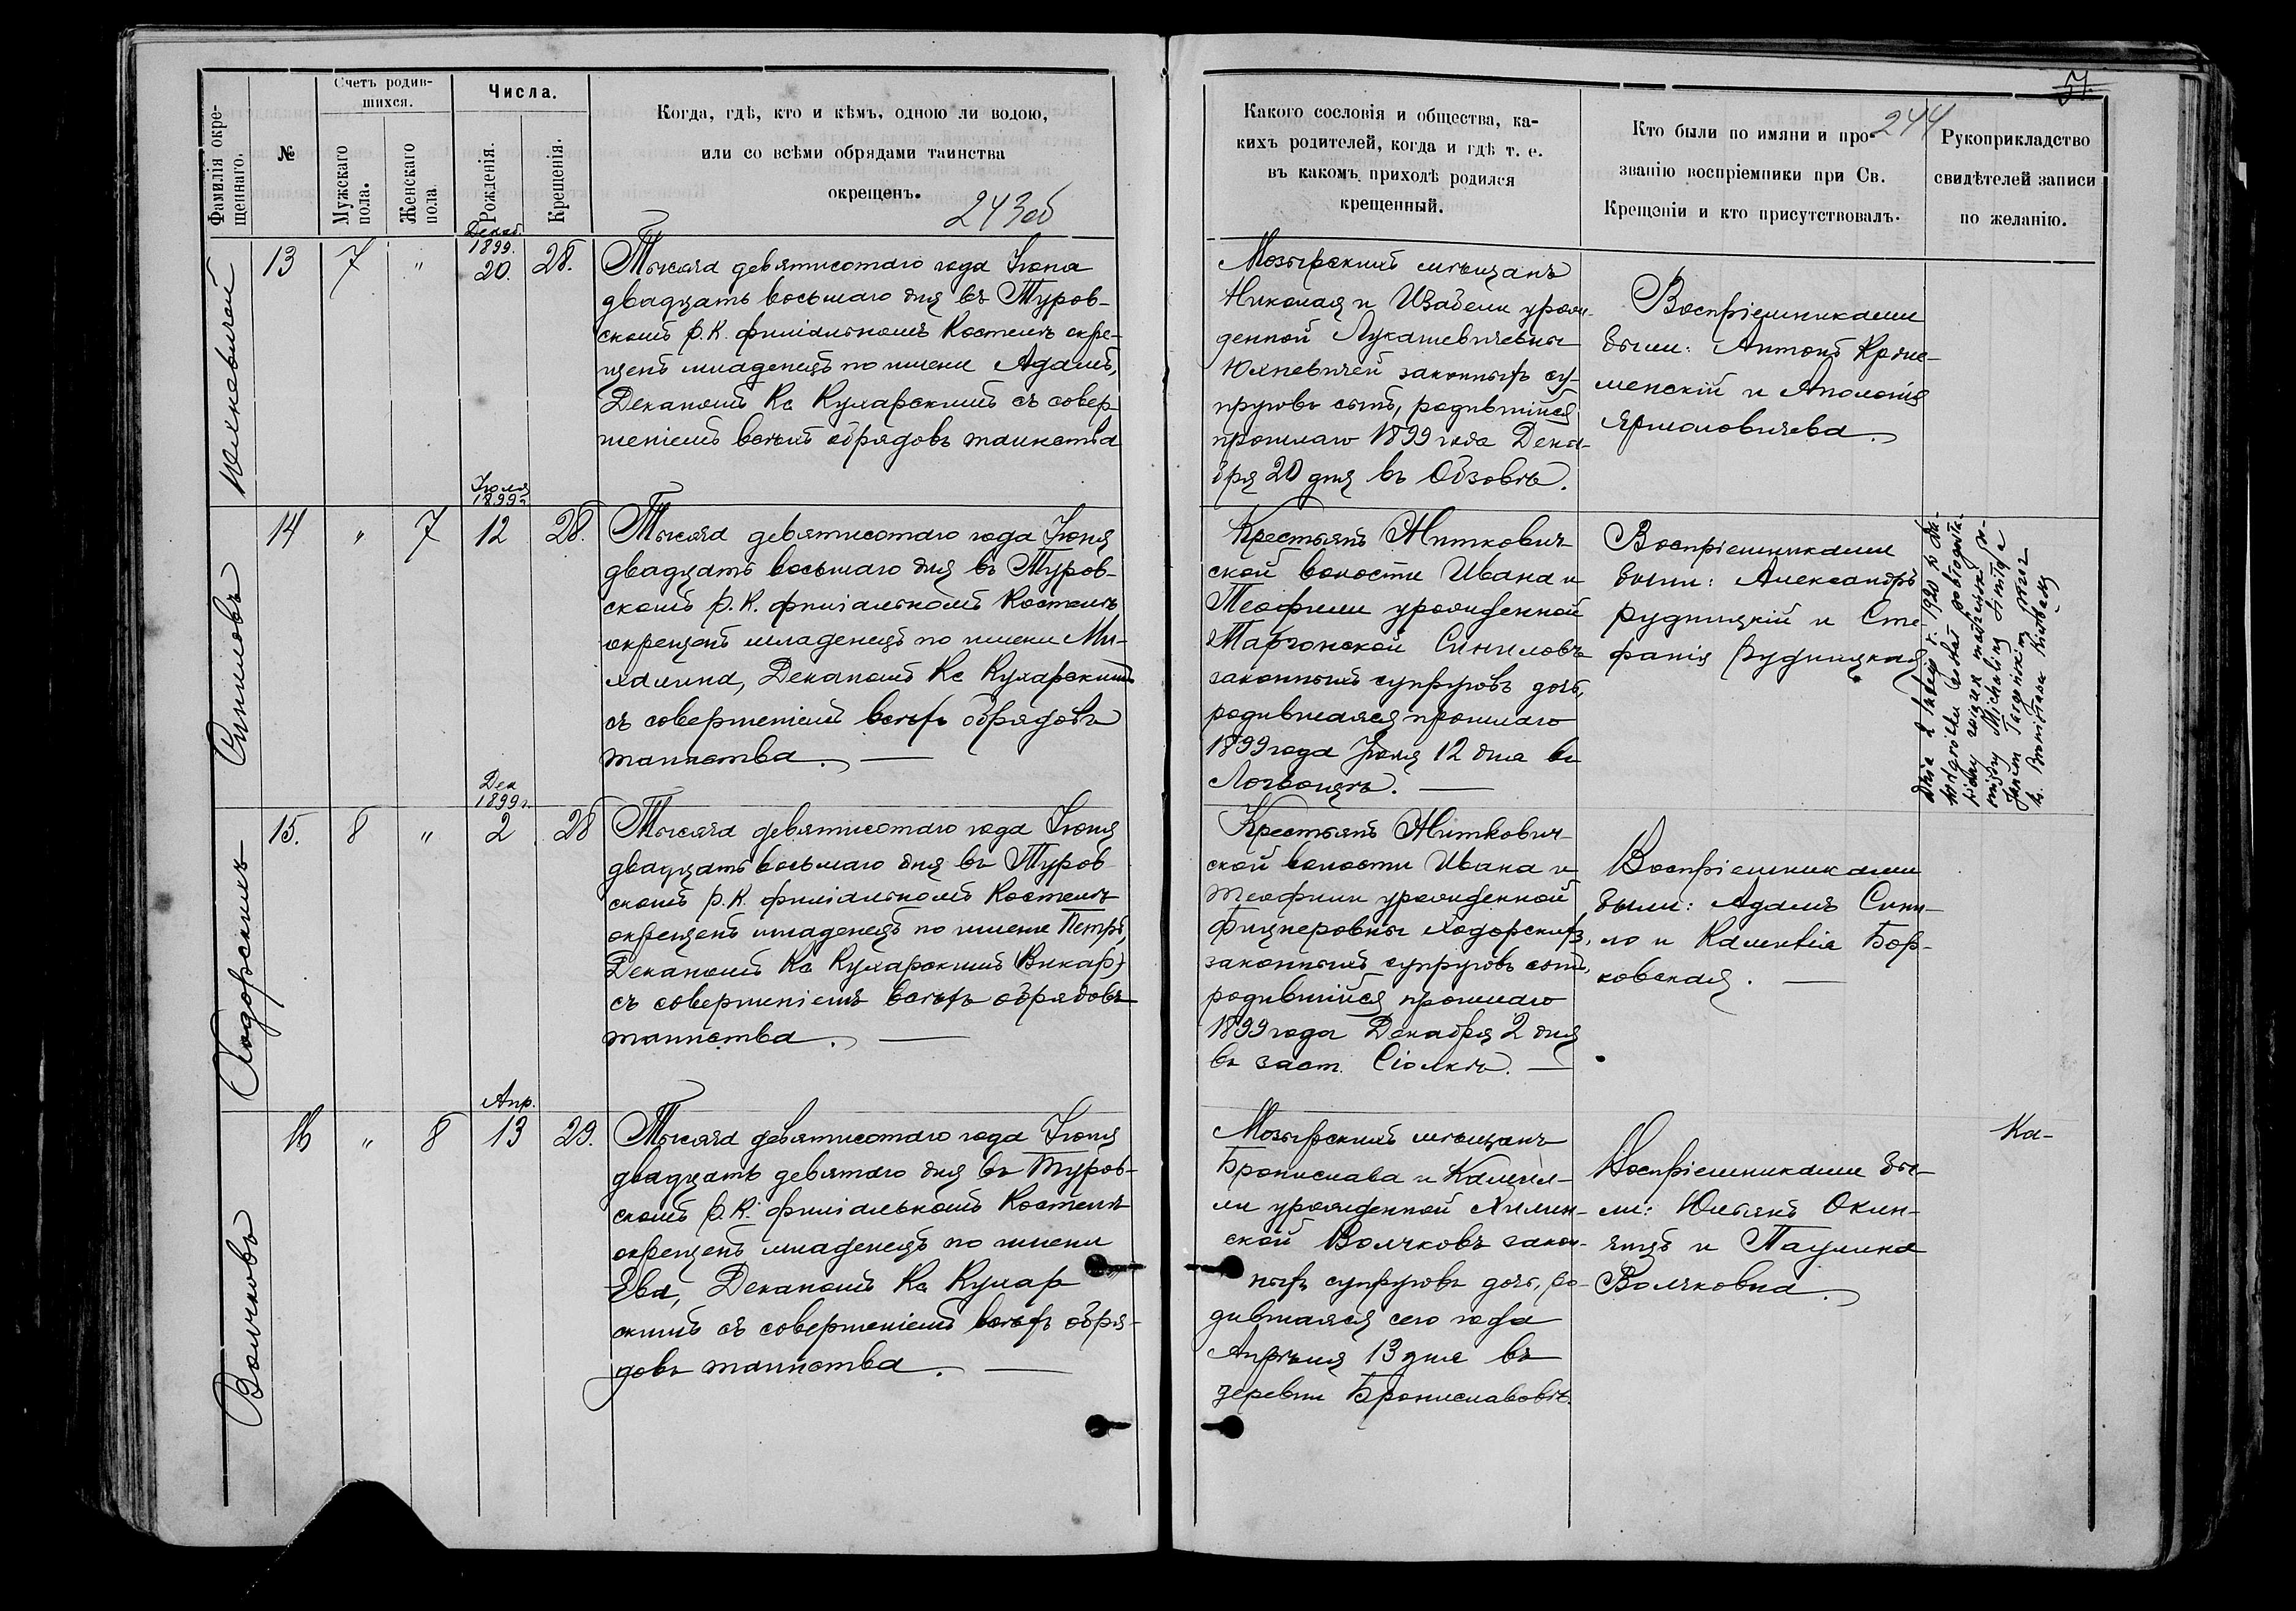 Фамилія окре-
щеннаго.
№
Счетъ родив-
шихся.
Мужскаго
пола.
Женскаго
пола
Числа.
Рожденія.
Крещенія.
Когда, гдѣ, кто и кѣмъ, одною ли водою,
или со всѣми обрядами таинства
окрещенъ.
243об
Юхневичей
13
7
"
Декаб.
1899.
20.
28.
Тысяча девятисотаго года Іюня
двадцать восьмаго дня въ Туров-
скомъ Р.К. филіальномъ Костелѣ окре-
щенъ младенецъ по имени Адамъ,
Деканомъ Кс Кухарскимъ съ совер-
шеніемъ всѣхъ обрядовъ таинства
Синиловъ
14
"
7
Іюля
1899г
12
28.
Тысяча девятисотаго года Іюня
двадцать восьмаго дня въ Туров-
скомъ Р.К. филіальномъ Костелѣ
окрещенъ младенецъ по имени Ми-
халина, Деканомъ Кс Кухарскимъ
съ совершеніемъ всѣхъ обрядовъ
таинства.
Ходорскихъ
15.
8
"
Дек
1899г.
2
28
Тысяча девятисотаго года Іюня
двадцать восьмаго дня въ Туров
скомъ Р.К. филіальномъ Костелѣ
окрещенъ младенецъ по имени Петръ,
Деканомъ Кс Кухарскимъ (Викар)
съ совершеніемъ всѣхъ обрядовъ
таинства.
Волчковъ
16
"
8
Апр.
13
29.
Тысяча девятисотаго года Іюня
двадцать девятаго дня въ Туров-
скомъ Р.К. филіальномъ Костелѣ
окрещенъ младенецъ по имени
Ева, Деканомъ Кс Кухар
скимъ съ совершеніемъ всѣхъ обря-
довъ таинства.
Какого сословія и общества, ка-
кихъ родителей, когда и гдѣ т. е.
въ какомъ приходѣ родился
крещенный.
Кто были по имяни и про-
званію воспріемники при Св.
Крещеніи и кто присутствовалъ.
244
Рукоприкладство
свидѣтелей записи
по желанію.
51.
Мозырскихъ мѣщанъ
Николая и Изабели урож-
денной Лукашевичевны
Юхневичей законныхъ су-
пруговъ сынъ, родившійся
прошлаго 1899 года Дека-
бря 20 дня въ Обзовѣ.
Воспріемниками
были: Антонъ
менскій и Аполонія
Ярмоловичева.
Крестьянъ Житкович-
ской волости Ивана и
Теофили урожденной
Маргонской Синиловъ
законныхъ супруговъ дочь,
родившаяся прошлаго
1899 года Іюля 12 дня въ
Воспріемниками
были: Александръ
Рудницкій и Сте-
фанія Рудницкая
Dnia 2 lutego r. 1920 w
kościółku został pobłogosła-
wiony związek małżeński po-
między Michaliną Siniło a
Janem przez
ks. Bronisława
Крестьянъ Житкович-
ской волости Ивана и
Теофили урожденной
Фицнеровны Ходорскихъ,
законныхъ супруговъ сынъ,
родившійся прошлаго
1899 года Декабря 2 дня
въ заст. Сіолкѣ.
Воспріемниками
были: Адамъ Сини-
ло и Камилія Бор-
ковская.
Мозырскихъ мѣщанъ
Бронислава и Камил-
ли урожденной Хилин-
ской Волчковъ закон-
ныхъ супруговъ дочь, ро-
дившаяся сего года
Апрѣля 13 дня въ
деревни Брониславовѣ.
Воспріемниками бы-
ли: Юльянъ Окин-
чицъ и Паулина
Волчковна.
Ка-